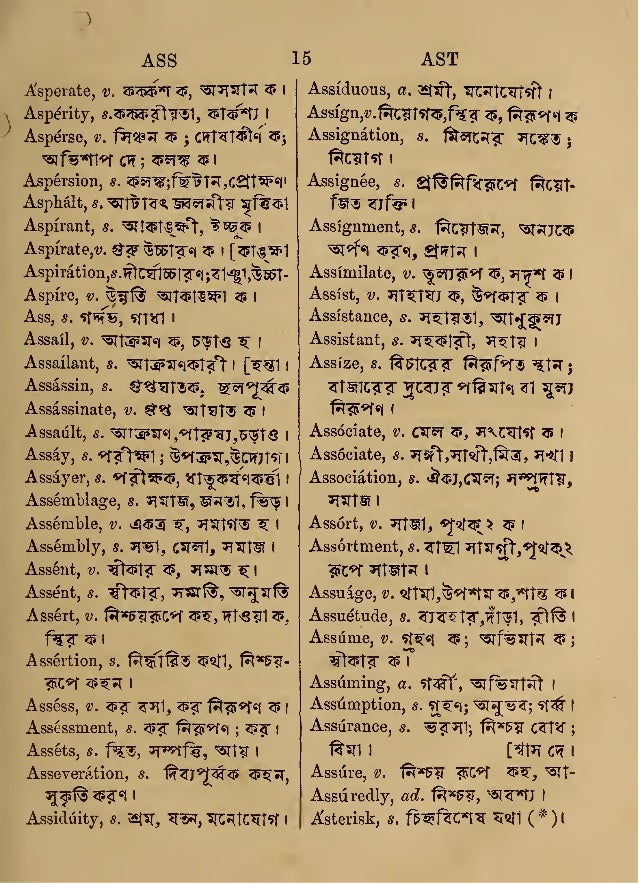 ASS 15 AST
Ásperate, v. কর্কশ ক, অসমান ক।
Aspérity, s. কক্করীয়তা, কার্কশ্য।
Aspérse, v. সিঞ্চন ক; দোষাকীর্ণ ক;
অভিশাপ দে; কলঙ্ক ক।
Aspérsion, s. কলঙ্ক;ছিটান,প্রোক্ষণ।
Asphált, s. আটাবৎ জ্বলনীয় মৃত্তিকা
Aspírant, s. আকাঙ্ক্ষী, ইচ্ছুক।
Aspírate,v. গুরু উচ্চারণ ক। [কাঙ্ক্ষা
Aspirátion,s.দীর্ঘোচ্চারণ;বাঞ্ছা,উচ্চা-
Aspíre, v. উন্নতি আকাঙ্ক্ষা ক।
Ass, s. গর্দ্দভ, গাধা।
Assaíl, v. আক্রমণ ক, চড়াও হ।
Assaílant, s. আক্রমণকারী। [হন্তা।
Assássin, s. গুপ্তঘাতক, ছলপূর্ব্বক
Assássinate, v. গুপ্ত আঘাত ক।
Assaúlt, s. আক্রমণ,পারুষ্য,চড়াও।
Assáy, s. পরীক্ষা; উপক্রম,উদ্যোগ।
Assáyer, s. পরীক্ষক, ধাতুকর্ষণকর্ত্তা।
Assémblage, s. সমাজ, জনতা, ভিড়।
Assémble, v. একত্র হ, সমাগত হ।
Assémbly, s. সভা, মেলা, সমাজ।
Assént, v. স্বীকার ক, সম্মত হ।
Assént, s. স্বীকার, সম্মতি, অনুমতি
Assért, v. নিশ্চয়রূপে কহ, দাওয়া ক,
স্থির ক।
Assértion, s. নির্দ্ধারিত কথা, নিশ্চয়-
রূপে কহন।
Asséss, v. কর বসা, কর নিরূপণ ক।
Asséssment, s. কর নিরূপণ; কর।
Asséts, s. স্থিত, সম্পত্তি, আয়।
Asseverátion, s. দিব্যপূর্ব্বক কহন,
সুকৃতি করণ।
Assidúity, s. শ্রম, যতন, মনোযোগ।
Assíduous, a. শ্রমী, মনোযোগী।
Assígn,v.নিয়োগক,স্থির ক, নিরূপণ ক
Assignátion, s. মিলনের সঙ্কেত;
নিয়োগ।
Assignée, s. প্রতিনিধিরূপে নিয়ো-
জিত ব্যক্তি।
Assígnment, s. নিয়োজন, অন্যকে
অর্পণ করণ, প্রদান।
Assímilate, v. তুল্যরূপ ক, সদৃশ ক।
Assíst, v. সাহায্য ক, উপকার ক।
Assístance, s. সহায়তা, আনুকূল্য
Assistant, s. সহকারী, সহায়।
Assíze, s. বিচারের নিরূপিত স্থান;
বাজারের দ্রব্যের পরিমাণ বা মূল্য
নিরূপণ।
Assóciate, v. মেল ক, সংযোগ ক।
Assóciate, s. সঙ্গী,সাথী,মিত্র, সখা।
Associátion, s. ঐক্য,মেল; সম্প্রদায়,
সমাজ।
Assórt, v. সাজা, পৃথক্ ২ ক।
Assórtment, s. বাছা সামগ্রী,পৃথক্২
রূপে সাজান।
Assuáge, v. থামা,উপশম ক,শান্ত ক।
Assuétude, s. ব্যবহার,দাঁড়া, রীতি।
Assúme, v. গ্রহণ ক; অভিমান ক;
স্বীকার ক।
Assúming, a. গর্ব্বী, অভিমানী।
Assúmption, s. গ্রহণ; অনুভব; গর্ব্ব।
Assúrance, s. ভরসা; নিশ্চয় বোধ;
বিমা। [শ্বাস দে।
Assúre, v. নিশ্চয় রূপে কহ, আ-
Assúredly, ad. নিশ্চয়, অবশ্য।
Ásterisk, s. চিহ্নবিশেষ যথা (*)।